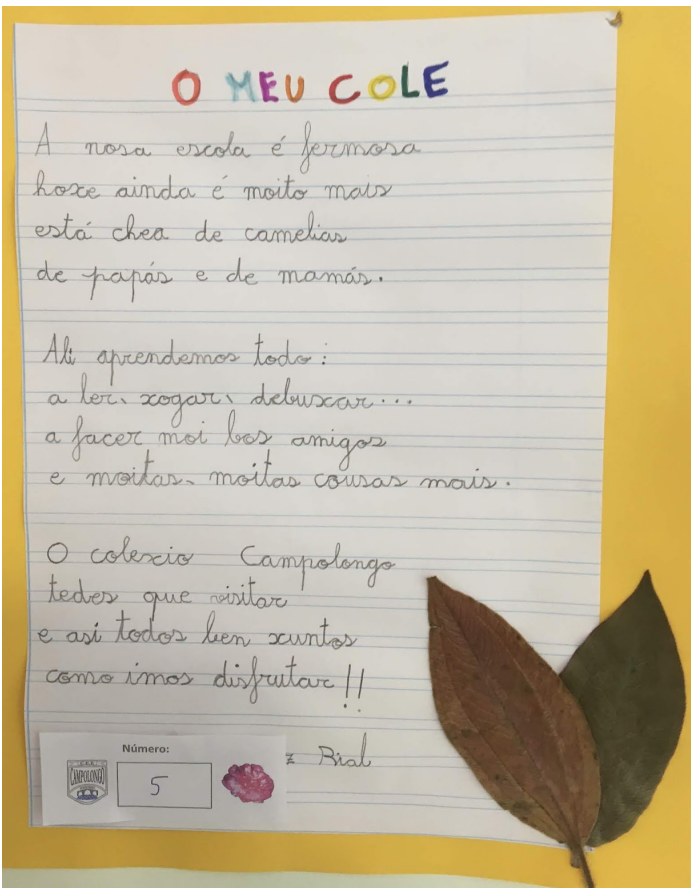 O MEU COLE
A nosa escola é fermosa
hoxe ainda é moito mais
está chea de camelias
de papás e de mamás.
Ali aprendemos todo:
a ler, xogar, debuxar...
a facer moi bos amigos
e moitas, moitas cousas mais.
O colexio Campolongo
tedes que visitar
e así todos ben xuntos
como imos disfrutar!!
z Bial
Número:
CAMPOLONGO
5